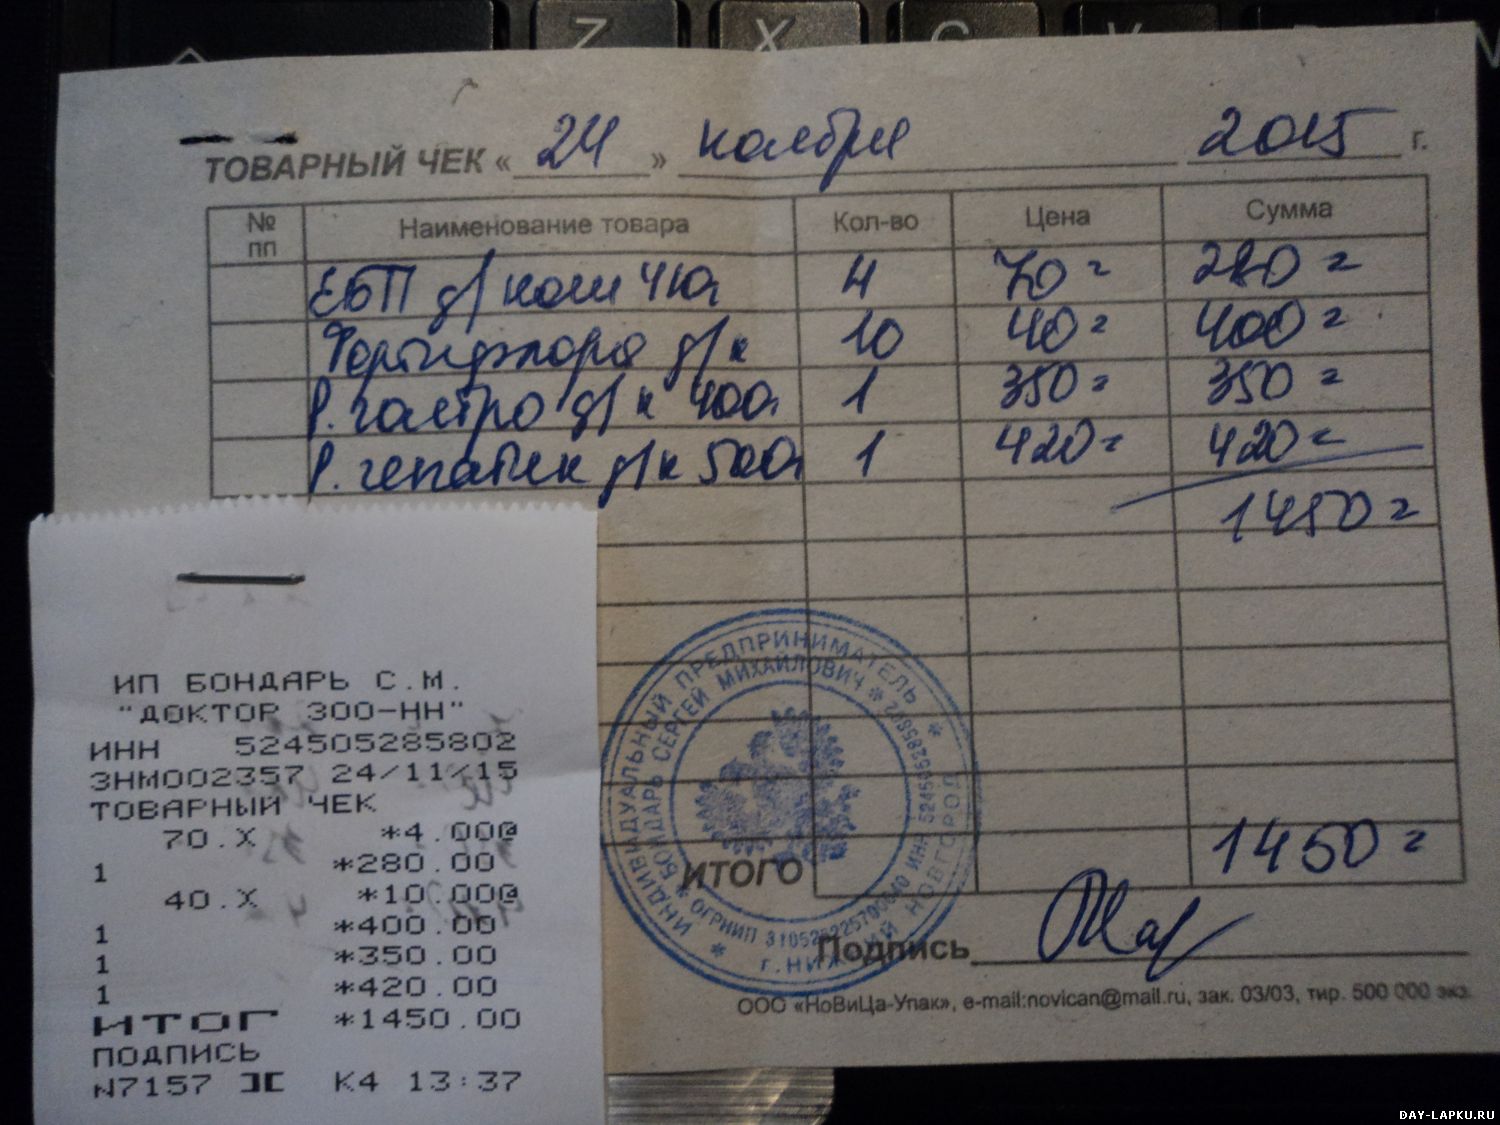 Z X C V
ТОВАРНЫЙ ЧЕК « 24 » ноября 2015 г.
№ пп Наименование товара Кол-во Цена Сумма
д/кош 4 70= 280=
Фортифлора д/к 10 40= 400=
P. гастро д/к 400г 1 350= 350=
P. гепатик д/к 500г 1 420= 420=
1450=
ИТОГО 1450=
Подпись
ООО «НоВиЦа-Упак», e-mail:novican@mail.ru, зак. 03/03, тир. 500 000 экз.
ИНДИВИДУАЛЬНЫЙ ПРЕДПРИНИМАТЕЛЬ *
БОНДАРЬ СЕРГЕЙ МИХАЙЛОВИЧ *
* г. НИЖНИЙ НОВГОРОД
ИП БОНДАРЬ С.М.
"ДОКТОР ЗОО-НН"
ИНН 524505285802
ЗНМ002357 24/11/15
ТОВАРНЫЙ ЧЕК
70.X *4.00@
1 *280.00
40.X *10.00@
1 *400.00
1 *350.00
1 *420.00
ИТОГ *1450.00
ПОДПИСЬ
N7157 К4 13:37
DAY-LAPKU.RU